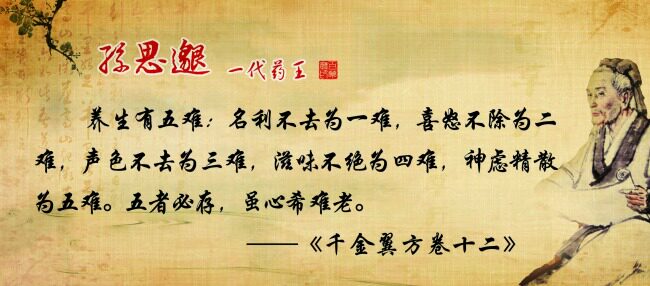 孙思邈 一代药王
养生有五难：名利不去为一难，喜怒不除为二
难，声色不去为三难，滋味不绝为四难，神虑精散
为五难。五者必存，虽心希难老。
——《千金翼方卷十二》